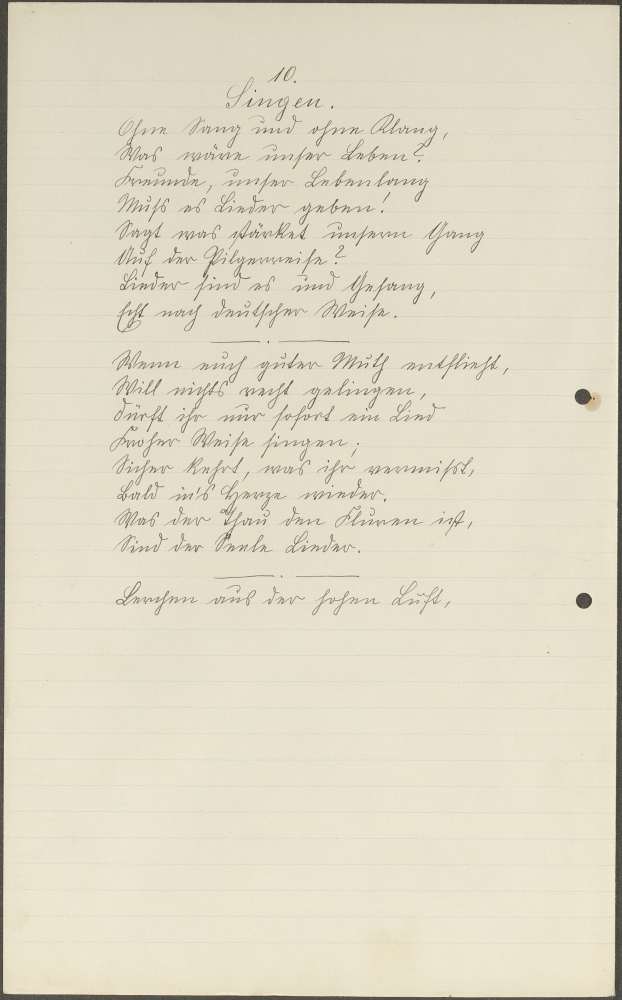 10.
Singen.
Ohne Sang und ohne Klang,
Was wäre unser Leben?
Freunde, unser Lebenlang
Muß es Lieder geben!
Sagt was stärket unsern Gang
Auf der Pilgerreise?
Lieder sind es und Gesang,
Echt nach deutscher Weise.
Wenn euch guter Muth entflieht,
Will nichts recht gelingen,
Dürft ihr nur sofort ein Lied
Froher Weise singen;
Sicher kehrt, was ihr vermißt,
Bald in's Herze wieder.
Was der Thau den Fluren ist,
Sind der Seele Lieder.
Lerchen aus der hohen Luft,